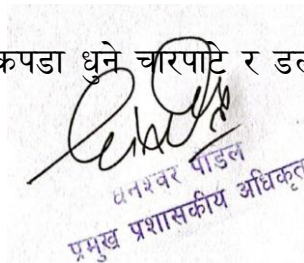 कपडा धुने चारपाटे र
धनश्वर पौडेल
प्रमुख प्रशासकीय अधिकृत